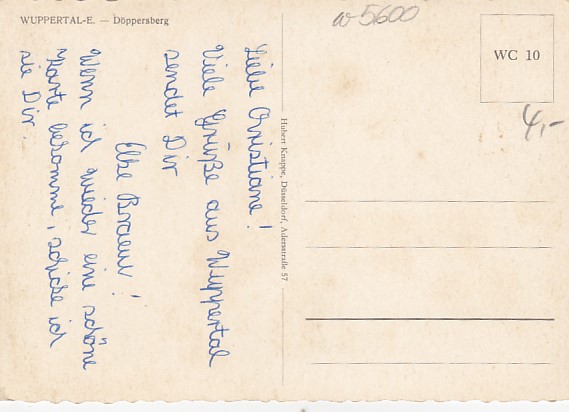 WUPPERTAL-E. — Döppersberg
w 5600
WC 10
4,-
Liebe Christiane!
Viele Grüße aus Wuppertal
sendet Dir
Elke Braun!
Wenn ich wieder eine schöne
Karte bekomme, schicke ich
sie Dir.
Hubert Knuppe, Düsseldorf, Adersstraße 57